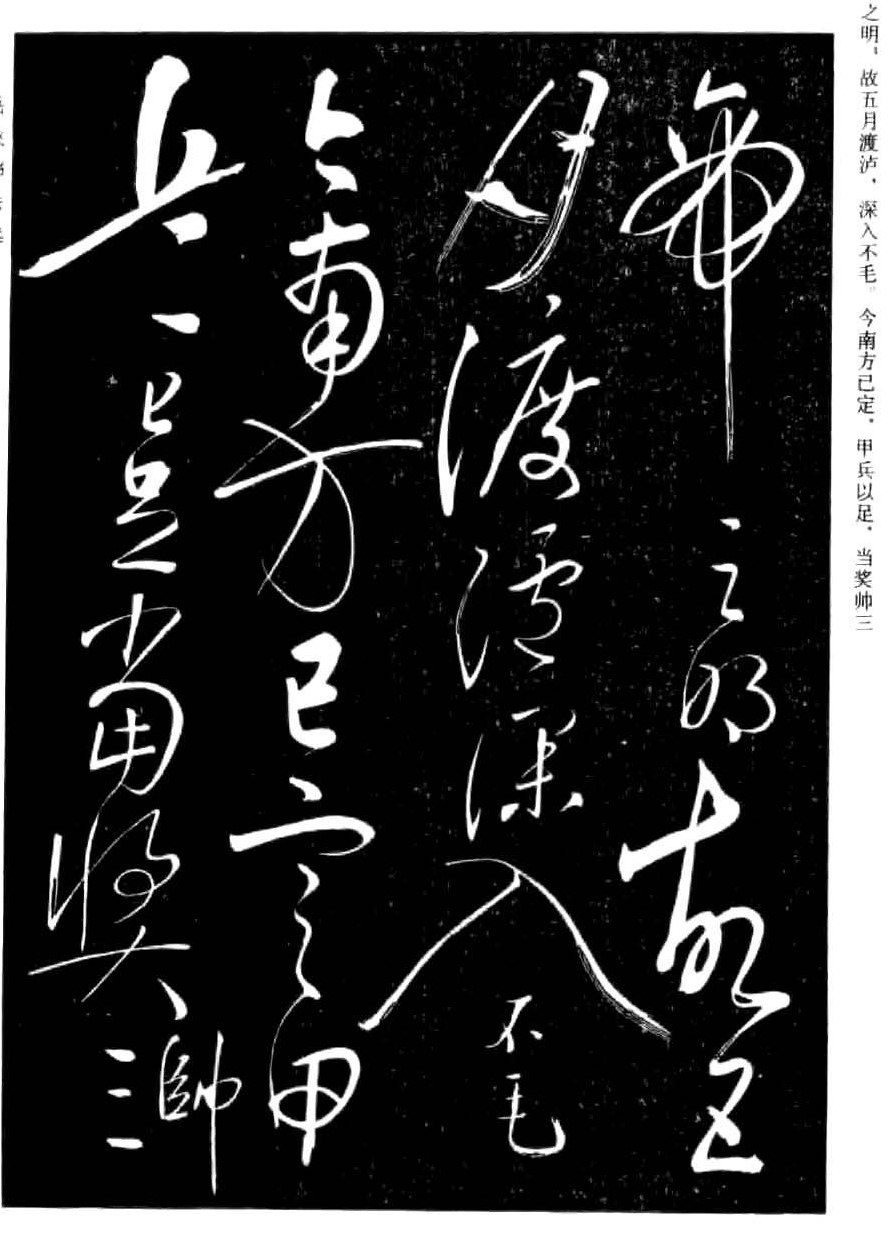 之明,故五月渡泸,深入不毛。今南方已定,甲兵以足,当奖帅三
帝之明故五
月渡瀘深入不毛
今南方已定甲
兵以足當奬帥三